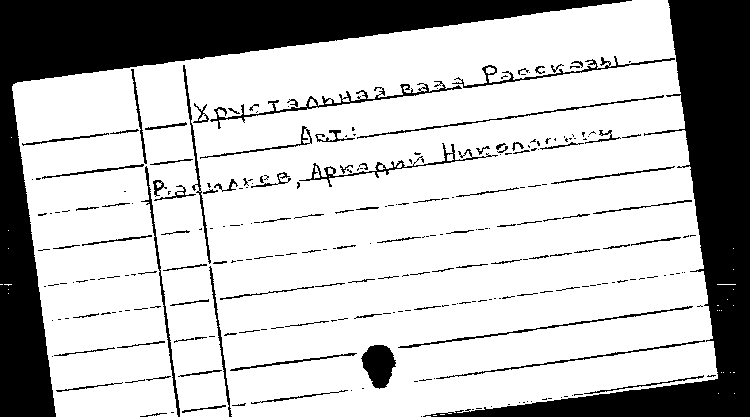 Хрустальная ваза Рассказы.
Авт.:
Васильев, Аркадий Николаевич